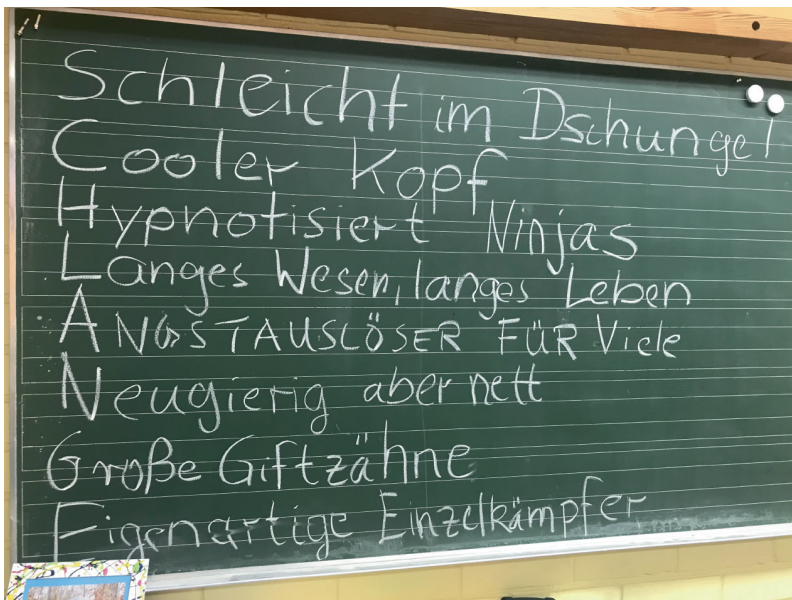 Schleicht im Dschungel
Cooler Kopf
Hypnotisiert Ninjas
Langes Wesen, langes Leben
ANGSTAUSLÖSER FÜR Viele
Neugierig aber nett
Große Giftzähne
Eigenartige Einzelkämpfer